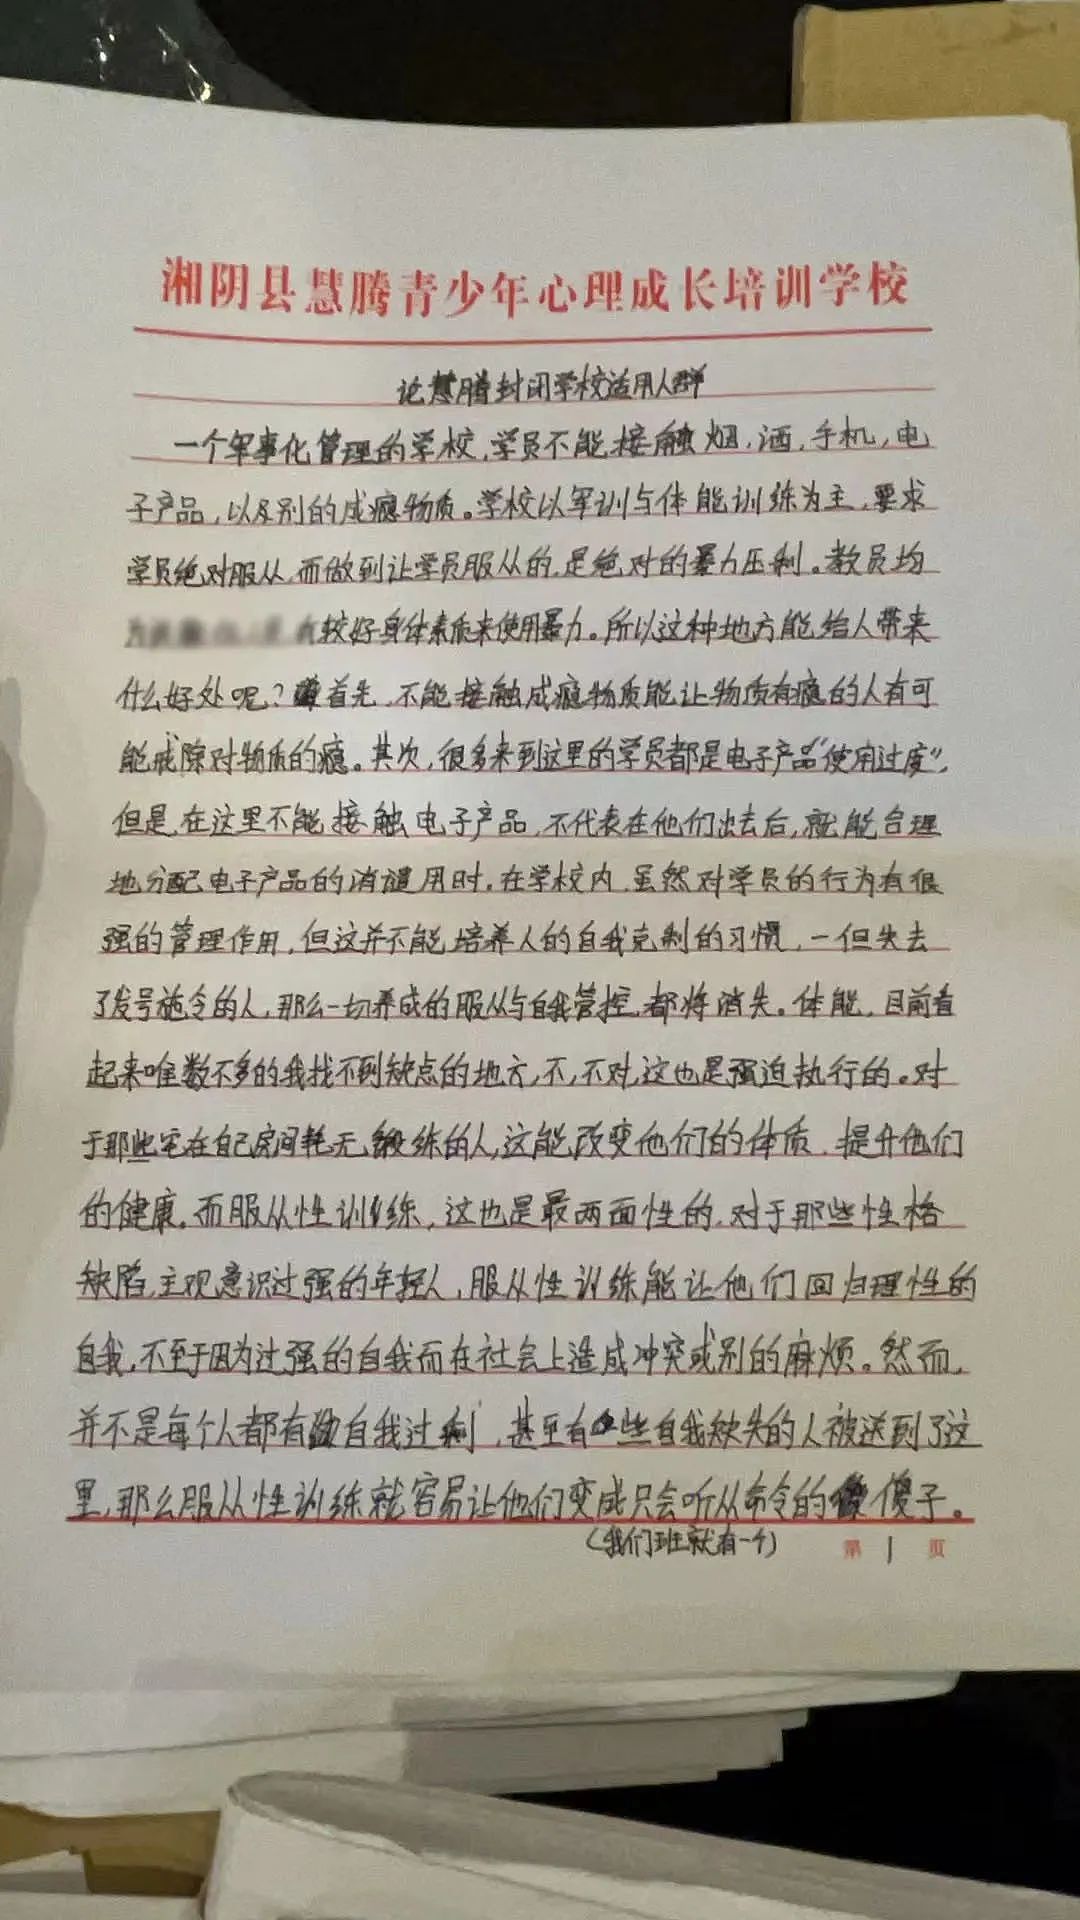 湘阴县慧腾青少年心理成长培训学校
论慧腾封闭学校适用人群
一个军事化管理的学校,学员不能接触烟,酒,手机,电
子产品,以及别的成瘾物质。学校以军训与体能训练为主,要求
学员绝对服从,而做到让学员服从的,是绝对的暴力压制。教员均
较好身体素质来使用暴力。所以这种地方能给人带来
什么好处呢?首先,不能接触成瘾物质能让物质有瘾的人有可
能戒除对物质的瘾。其次,很多来到这里的学员都是电子产品“使用过度”,
但是,在这里不能接触电子产品,不代表在他们出去后,就能合理
地分配电子产品的消遣用时。在学校内,虽然对学员的行为有很
强的管理作用,但这并不能培养人的自我克制的习惯,一但失去
了发号施令的人,那么一切养成的服从与自我管控,都将消失。体能,目前看
起来唯数不多的我找不到缺点的地方,不,不对,这也是强迫执行的。对
于那些宅在自己房间耗无锻练的人,这能改变他们的体质,提升他们
的健康。而服从性训练,这也是最两面性的,对于那些性格
缺陷,主观意识过强的年轻人,服从性训练能让他们回归理性的
自我,不至于因为过强的自我而在社会上造成冲突或别的麻烦。然而,
并不是每个人都有自我过剩,甚至有些自我缺失的人被送到了这
里,那么服从性训练就容易让他们变成只会听从命令的傻子。
(我们班就有一个)
第1页